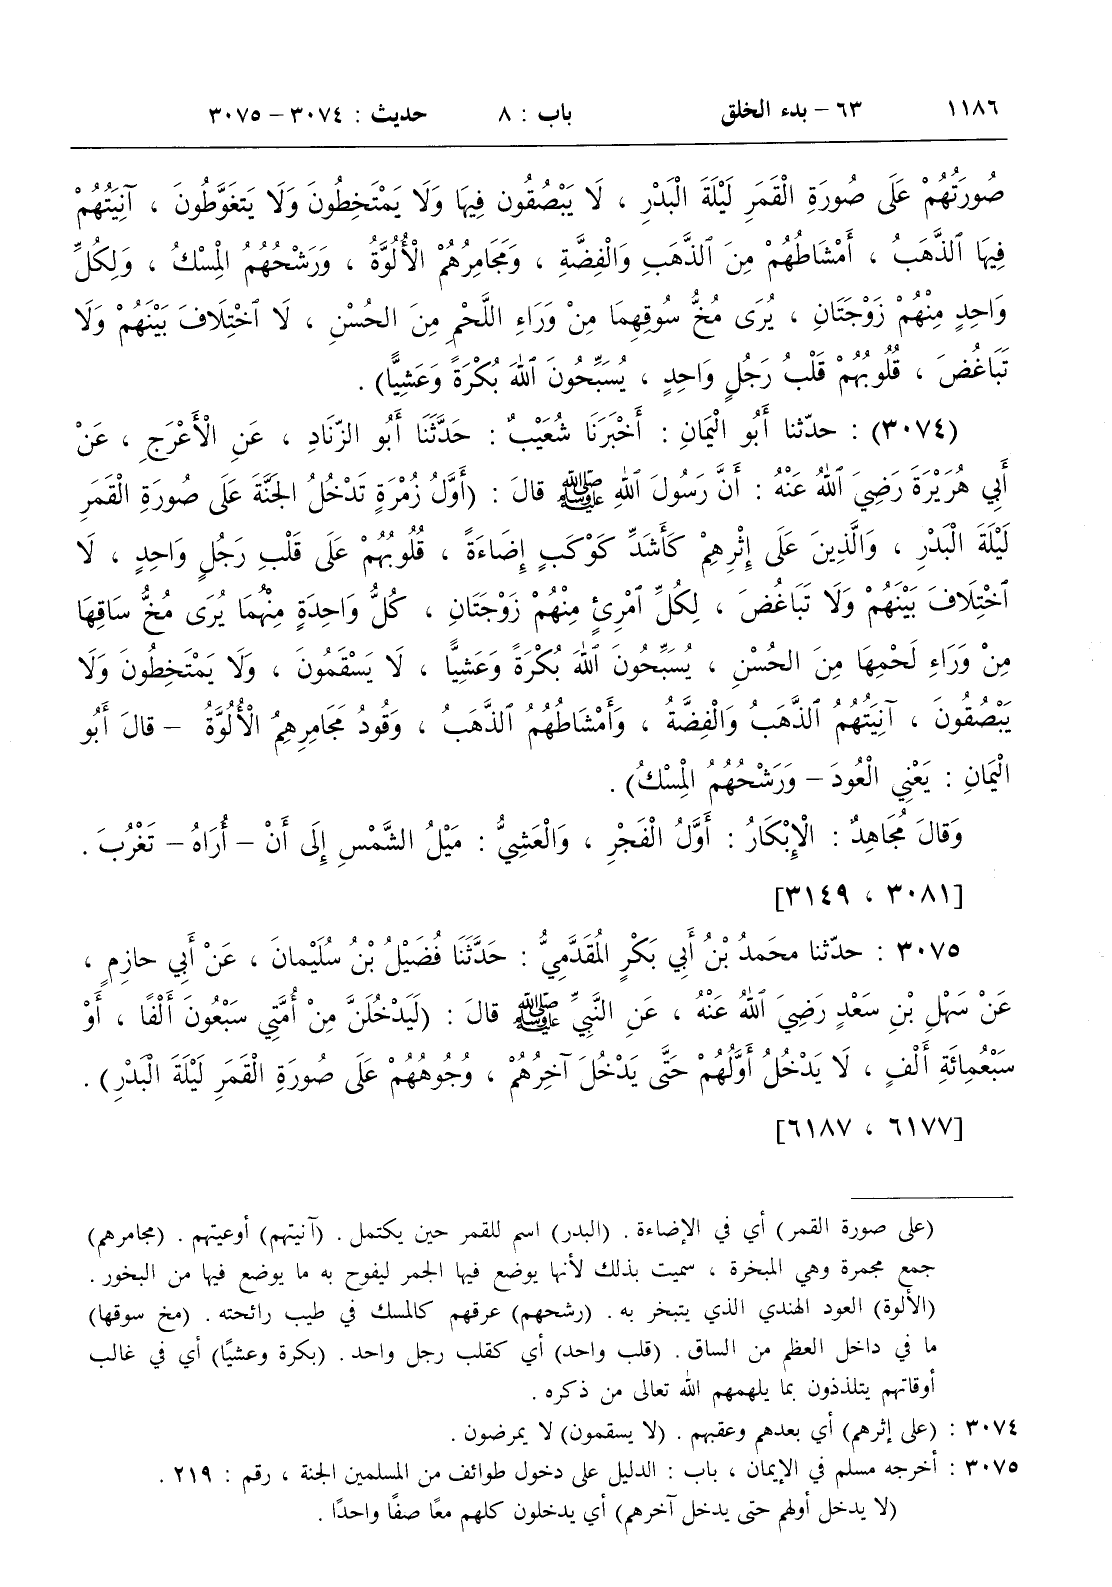 ١١٨٦ ٦٣ – بدء الخلق باب : ٨ حديث : ٣٠٧٤ – ٣٠٧٥
صُورَتُهُمْ عَلَى صُورَةِ الْقَمَرِ لَيْلَةَ الْبَدْرِ ، لَا يَبْصُقُون فِيهَا وَلَا يَمْتَخِطُونَ وَلَا يَتَغَوَّطُونَ ، آنِيَتُهُمْ
فِيهَا ٱلذَّهَبُ ، أَمْشَاطُهُمْ مِنَ ٱلذَّهَبِ وَالْفِضَّةِ ، وَمَجَامِرُهُمْ الْأُلُوَّةُ ، وَرَشْحُهُمُ الْمِسْكُ ، وَلِكُلِّ
وَاحِدٍ مِنْهُمْ زَوْجَتَانِ ، يُرَى مُخُّ سُوقِهِمَا مِنْ وَرَاءِ اللَّحْمِ مِنَ الحُسْنِ ، لَا ٱخْتِلَافَ بَيْنَهُمْ وَلَا
تَبَاغُضَ ، قُلُوبُهُمْ قَلْبُ رَجُلٍ وَاحِدٍ ، يُسَبِّحُونَ ٱللهَ بُكْرَةً وَعَشِيًّا) .
(٣٠٧٤) : حدّثنا أَبُو الْيَمَانِ : أَخْبَرَنَا شُعَيْبٌ : حَدَّثَنَا أَبُو الزِّنَادِ ، عَنِ الْأَعْرَجِ ، عَنْ
أَبِي هُرَيْرَةَ رَضِيَ ٱللهُ عَنْهُ : أَنَّ رَسُولَ ٱللهِ ﷺ قالَ : (أَوَّلُ زُمْرَةٍ تَدْخُلُ الجَنَّةَ عَلَى صُورَةِ الْقَمَرِ
لَيْلَةَ الْبَدْرِ ، وَالَّذِينَ عَلَى إِثْرِهِمْ كَأَشَدِّ كَوْكَبٍ إِضَاءَةً ، قُلُوبُهُمْ عَلَى قَلْبِ رَجُلٍ وَاحِدٍ ، لَا
ٱخْتِلَافَ بَيْنَهُمْ وَلَا تَبَاغُضَ ، لِكُلِّ ٱمْرِئٍ مِنْهُمْ زَوْجَتَانِ ، كُلُّ وَاحِدَةٍ مِنْهُمَا يُرَى مُخُّ سَاقِهَا
مِنْ وَرَاءِ لَحْمِهَا مِنَ الحُسْنِ ، يُسَبِّحُونَ ٱللهَ بُكْرَةً وَعَشِيًّا ، لَا يَسْقَمُونَ ، وَلَا يَمْتَخِطُونَ وَلَا
يَبْصُقُونَ ، آنِيَتُهُمُ ٱلذَّهَبُ وَالْفِضَّةُ ، وَأَمْشَاطُهُمُ ٱلذَّهَبُ ، وَقُودُ مَجَامِرِهِمُ الْأُلُوَّةُ – قالَ أَبُو
الْيَمَانِ : يَعْنِي الْعُودَ – وَرَشْحُهُمُ الْمِسْكُ) .
وَقالَ مُجَاهِدٌ : الْإِبْكَارُ : أَوَّلُ الْفَجْرِ ، وَالْعَشِيُّ : مَيْلُ الشَّمْسِ إِلَى أَنْ – أُرَاهُ – تَغْرُبَ .
[٣٠٨١ ، ٣١٤٩]
٣٠٧٥ : حدّثنا محمَدُ بْنُ أَبِي بَكْرٍ الْمُقَدَّمِيُّ : حَدَّثَنَا فُضَيْلُ بْنُ سُلَيْمانَ ، عَنْ أَبِي حازِمٍ ،
عَنْ سَهْلِ بْنِ سَعْدٍ رَضِيَ ٱللهُ عَنْهُ ، عَنِ النَّبِيِّ ﷺ قالَ : (لَيَدْخُلَنَّ مِنْ أُمَّتِي سَبْعُونَ أَلْفًا ، أَوْ
سَبْعُمِائَةِ أَلْفٍ ، لَا يَدْخُلُ أَوَّلُهُمْ حَتَّى يَدْخُلَ آخِرُهُمْ ، وُجُوهُهُمْ عَلَى صُورَةِ الْقَمَرِ لَيْلَةَ الْبَدْرِ) .
[٦١٧٧ ، ٦١٨٧]
(على صورة القمر) أي في الإضاءة . (البدر) اسم للقمر حين يكتمل . (آنيتهم) أوعيتهم . (مجامرهم)
جمع مجمرة وهي المبخرة ، سميت بذلك لأنها يوضع فيها الجمر ليفوح به ما يوضع فيها من البخور .
(الألوة) العود الهندي الذي يتبخر به . (رشحهم) عرقهم كالمسك في طيب رائحته . (مخ سوقها)
ما في داخل العظم من الساق . (قلب واحد) أي كقلب رجل واحد . (بكرة وعشيًا) أي في غالب
أوقاتهم يتلذذون بما يلهمهم الله تعالى من ذكره .
٣٠٧٤ : (على إثرهم) أي بعدهم وعقبهم . (لا يسقمون) لا يمرضون .
٣٠٧٥ : أخرجه مسلم في الإيمان ، باب : الدليل على دخول طوائف من المسلمين الجنة ، رقم : ٢١٩ .
(لا يدخل أولهم حتى يدخل آخرهم) أي يدخلون كلهم معًا صفًا واحدًا .